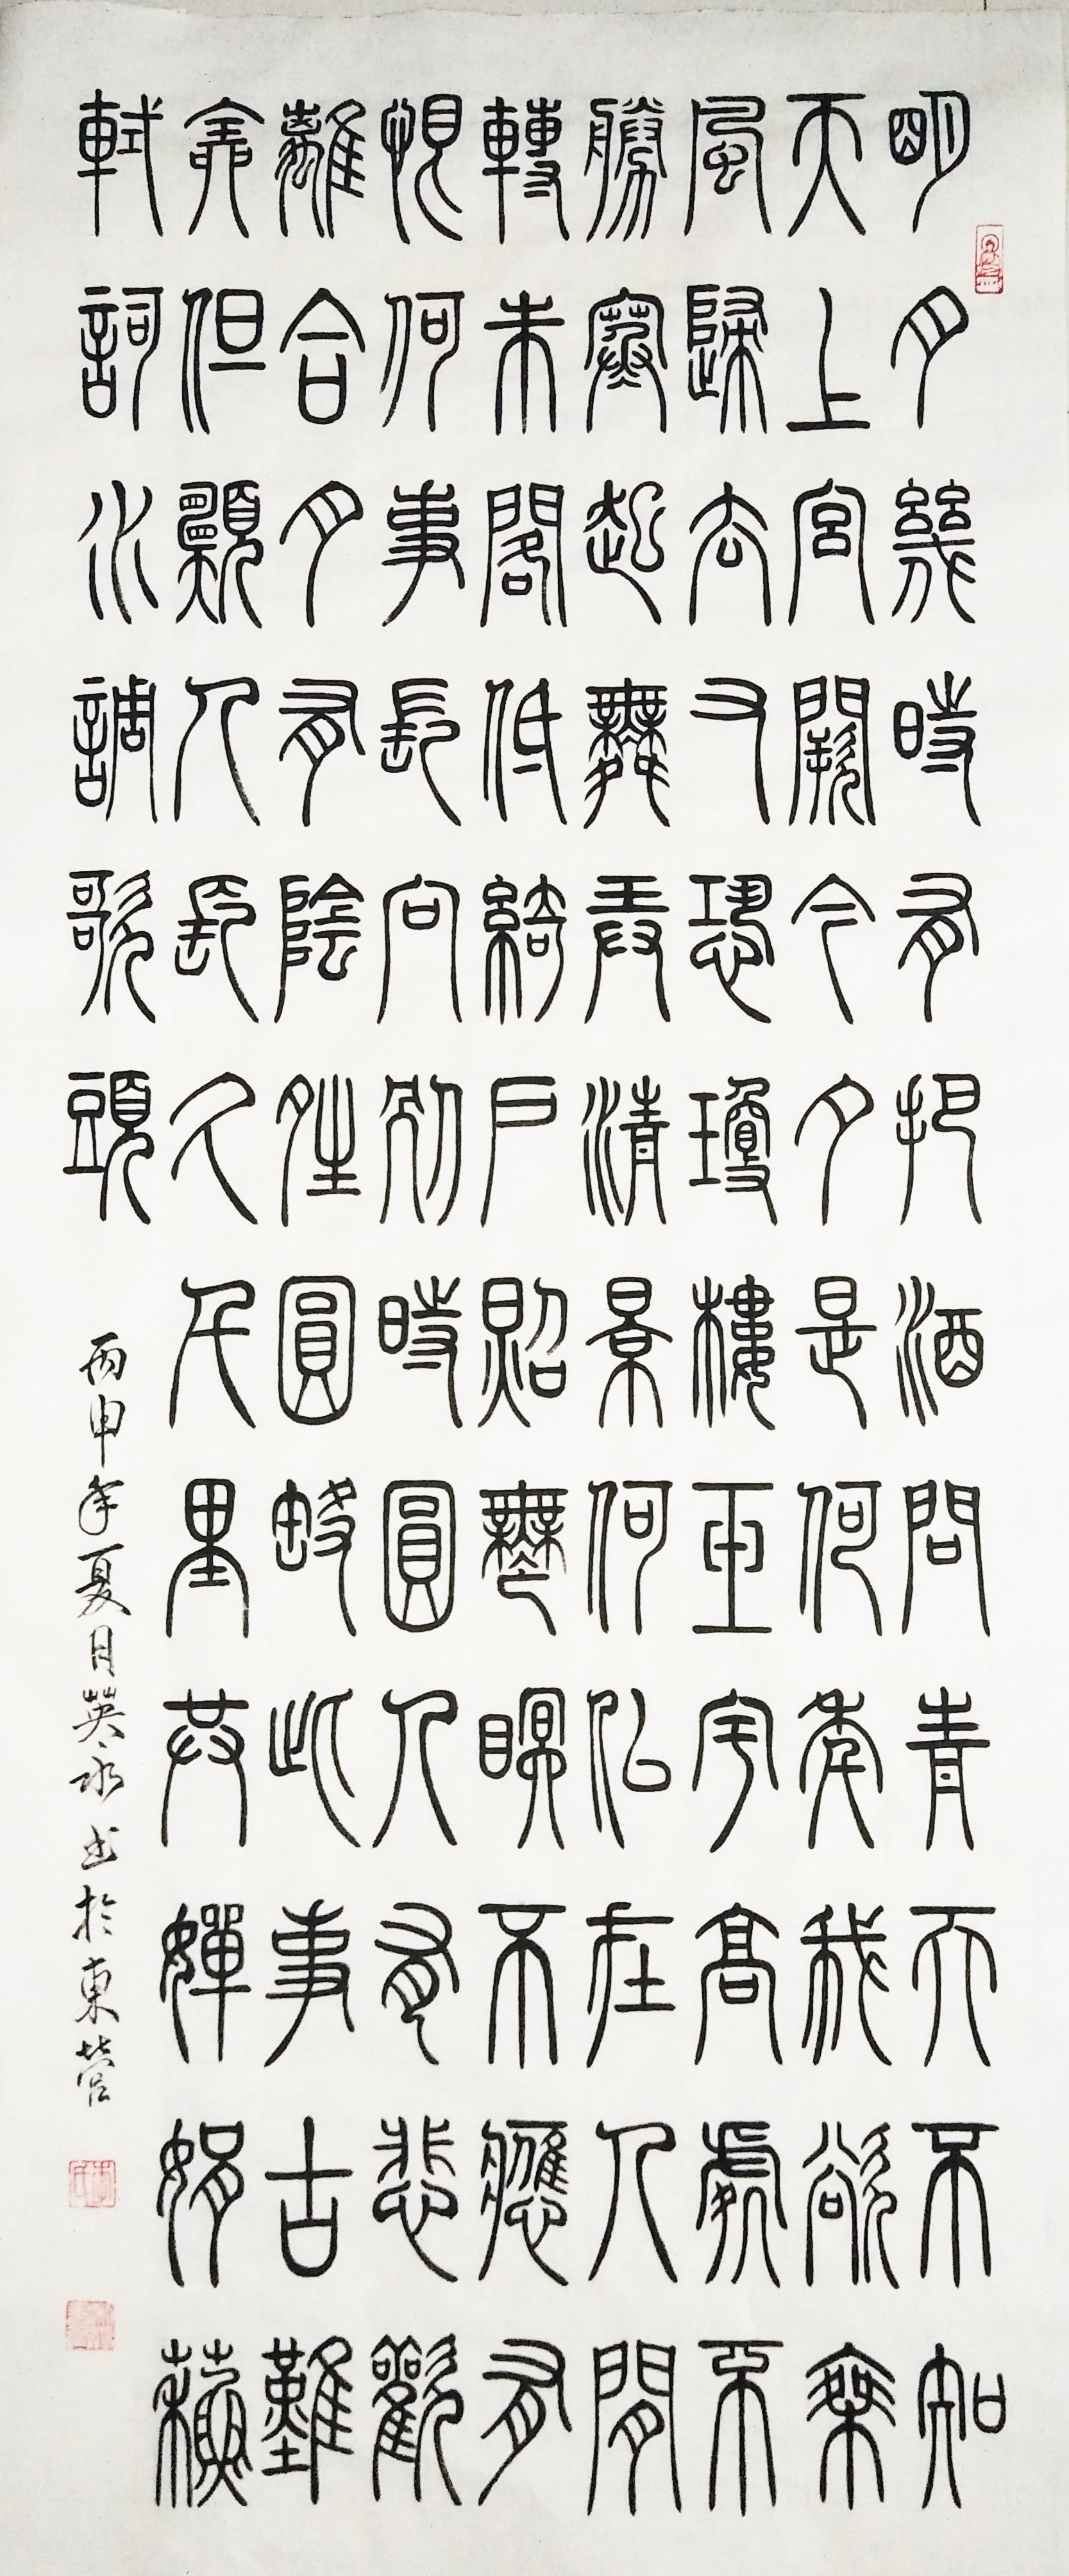 明月幾時有把酒問青天不知
天上宮闕今夕是何年我欲乘
風歸去又恐瓊樓玉宇高處不
勝寒起舞弄清景何似在人間
轉朱閣低綺戶照無眠不應有
恨何事長向別時圓人有悲歡
離合月有陰夝圓缺此事古難
全但願人長久千里共嬋娟蘇
軾詞水調歌頭
丙申年夏日英永书於東營